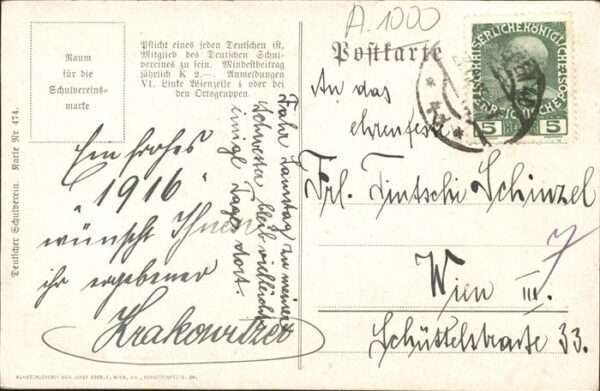 A. 1000
Raum
für die
Schulvereins-
marke
Pflicht eines jeden Deutschen ist,
Mitglied des Deutschen Schul-
vereines zu sein. Mindestbeitrag
jährlich K 2.—. Anmeldungen
VI. Linke Wienzeile 4 oder bei
den Ortsgruppen.
Deutscher Schulverein. Karte Nr 474.
Ein frohes
"1916"
wünscht Ihnen
ihr ergebener
Krakowitzer
Fahre Samstag zu meiner
Schwester bleib vielleicht
einige Tage dort.
Postkarte
An das
ehrenfeste
Frl. Tintschi Schinzel
Wien III.
7
Schüttelstraße 33.
KAISERLICHE KÖNIGLICHE
5 5